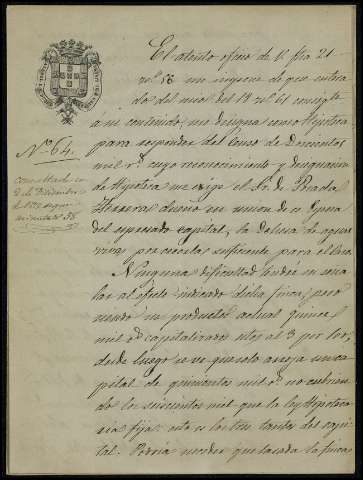 El atento oficio de V. fha 21
nº 58 me impone de que entera
do del mio del 18 nº 61
á su contenido, me designa como Hipoteca
para responder del Censo de Doscientos
mil rs cuyo reconocimiento y designacion
de Hipoteca me exige el Sr. de Parada
Herrera dueño en union de su Esposa
del espresado capital, la Dehesa de
por creerla suficiente para el
Ninguna dificultad tendré en seña
lar al efecto indicado dicha finca; pero
siendo su producto actual quince
mil rs capitalizados estos al 3 por 100,
desde luego se ve que solo arroja un ca
pital de quinientos mil rs no cubrien
do los seiscientos mil que la ley Hipoteca
ria fija; esto es los tres tantos del capi
tal. Podria suceder que tasada la finca
Nº 64.
Contestado en
2 de Diciembre